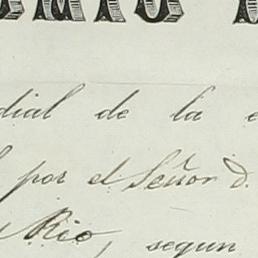 dial de la e
por el Señor D.
Rio, segun